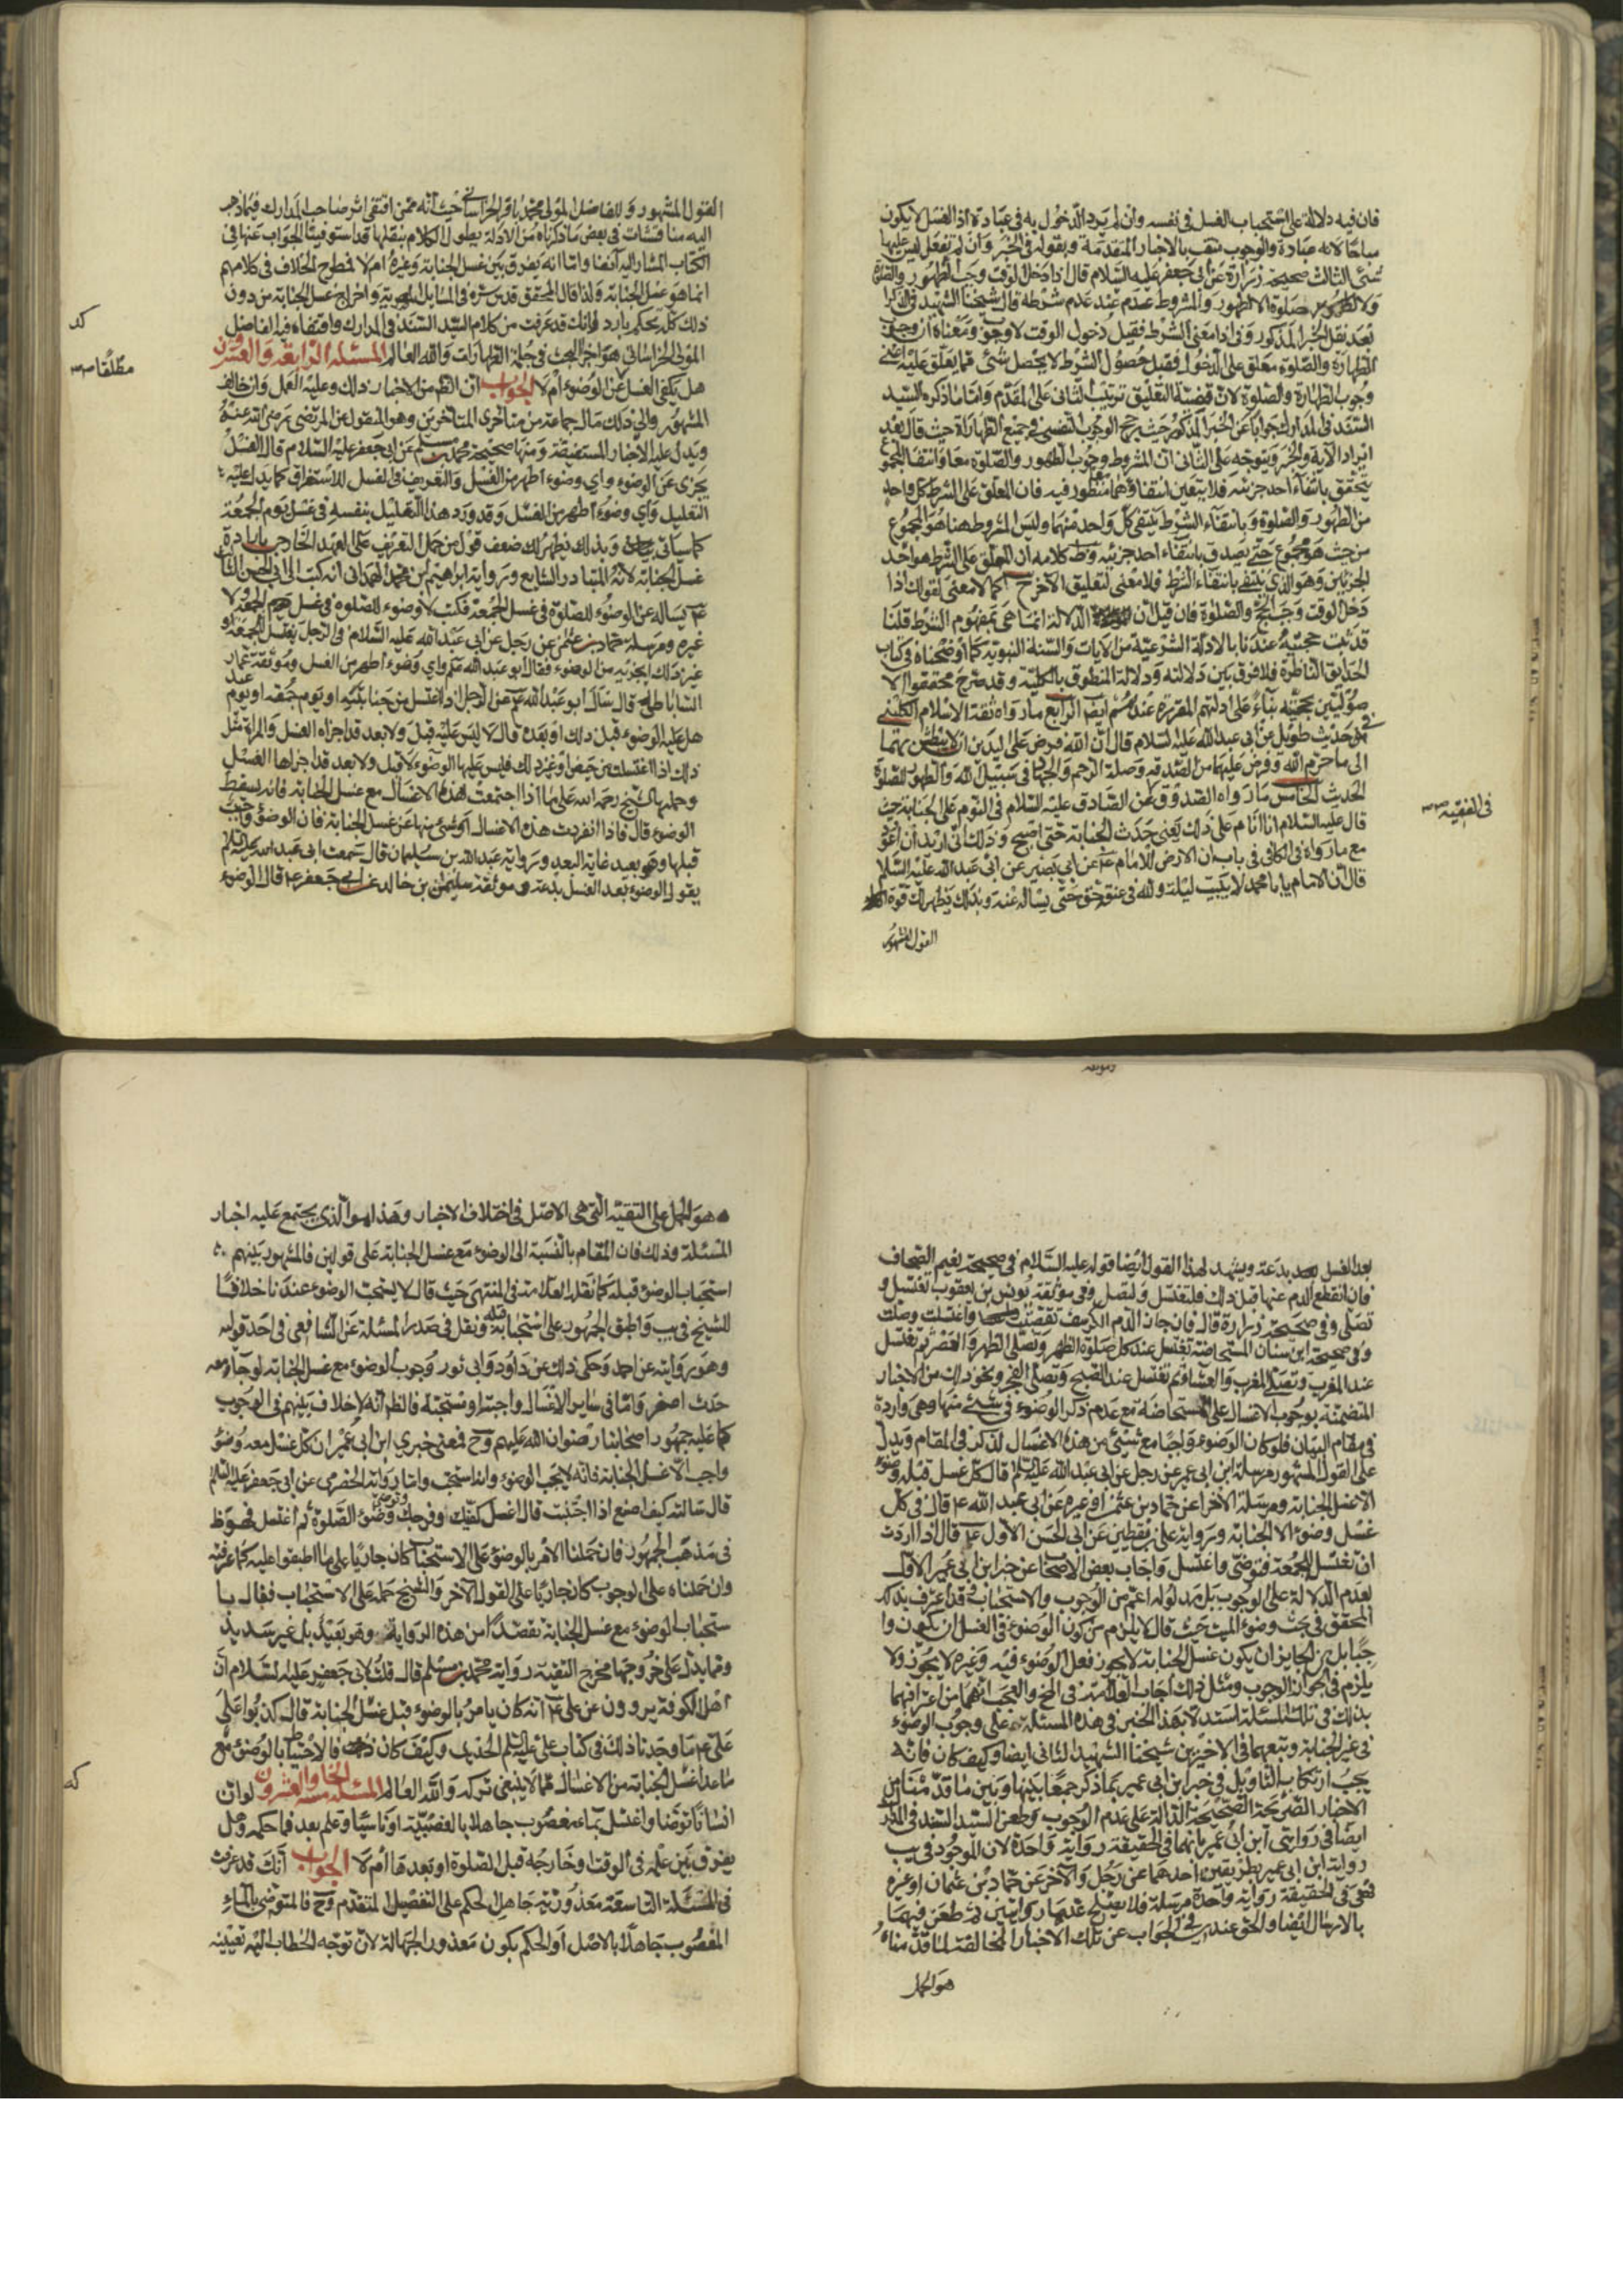 فان فيه دلالة على استحباب الغسل في نفسه وان لم يرد الدخول به في عبادة اذ الغسل لا يكون
مباحا لانه عبادة والوجوب منتف بالاخبار المتقدمة وبقوله في الخبر وان لم تفعل ليس عليها
شئ الثالث صحيحة زرارة عن ابي جعفر عليه السلام قال اذا دخل الوقت وجب الطهور والصلوة
ولا صلوة الا بطهور والمشروط عدم عند عدم شرطه قال شيخنا الشهيد في الذكرى
بعد نقل الخبر المذكور وفي اذا معنى الشرط فقبل دخول الوقت لا وجوب ومعناه ان وجوب
الطهارة والصلوة معلق على الدخول فقبل حصول الشرط لا يحصل شئ مما يعلق عليه اعني
وجوب الطهارة والصلوة لان قضية التعليق ترتيب الثاني على المقدم واما ما ذكره السيد
السند في المدارك جوابا عن الخبر المذكور حيث رجح الوجوب النفسي في جميع الطهارة حيث قال بعد
ايراد الآية والخبر ويتوجه على الثاني ان المشروط وجوب الطهور والصلوة معا وانتفا المجموع
يتحقق بانتفاء احد جزئيه فلا يتعين انتفاؤهما معا فمنظور فيه فان المعلق على الشرط كل واحد
من الطهور والصلوة وبانتفاء الشرط ينتفي كل واحد منهما وليس المشروط هنا هو المجموع
من حيث هو مجموع حتى يصدق بانتفاء احد جزئيه وظ كلامه ان المعلق على الشرط هو احد
الجزئين وهو الذي ينتفي بانتفاء الشرط فلا معنى لتعليق الآخر ح كما لا معنى لقولك اذا
دخل الوقت وجب الحج والصلوة فان قيل ان الدلالة انما هي بمفهوم الشرط قلنا
قد ثبت حجيته عندنا بالادلة الشرعية من الايات والسنة النبوية كما اوضحناه في كتاب
الحدايق الناظرة فلا فرق بين دلالته ودلالة المنطوق بالكلية وقد صرح محققوا الا
صوليين بحجيته بناء على ادلتهم المقررة عندهم ايضا الرابع ما رواه ثقة الاسلام الكليني
في حديث طويل عن ابي عبد الله عليه السلام قال ان الله فرض على اليدين ان لا يبطش بهما
الى ما حرم الله وفرض عليهما من الصدقة وصلة الرحم والجهاد في سبيل الله والطهور للصلوة
الحديث الخامس ما رواه الصدوق عن الصادق عليه السلام في النوم على الجنابة حيث
قال عليه السلام انا انام على ذلك يعني حدث الجنابة حتى اصبح وذلك اني اريد ان اعود
مع ما رواه في الكافي في باب ان الارض للامام ع عن ابي بصير عن ابي عبد الله عليه السلم
قال ان الامام يا با محمد لا يبيت ليلة ولله في عنقه حق حتى يسأله عنه وبذلك يظهر لك قوة
القول المشهور
في الفقيه
القول المشهور وللفاضل المولى محمد باقر الخراساني حيث انه ممن اقتفى اثر صاحب المدارك فيما ذهب
اليه مناقشات في بعض ما ذكرناه من الادلة يطول الكلام بنقلها قد استوفينا الجواب عنها في
الكتاب المشار اليه آنفا واما انه يفرق بين غسل الجنابة وغيره ام لا فمطرح الخلاف في كلامهم
انما هو غسل الجنابة ولذا قال المحقق قدس سره في المسايل واخراج غسل الجنابة من دون
ذلك كله تحكم بارد وانك قد عرفت من كلام السيد السند في المدارك واقتفاه فيه الفاضل
المولى الخراساني هو اجراء البحث في جملة الطهارات والله العالم المسئلة الرابعة والعشرون
هل يكفي الغسل عن الوضوء ام لا الجواب ان الظ من الاخبار ذلك وعليه العمل وان خالف
المشهور والى ذلك مال جماعة من متاخرى المتاخرين وهو المنقول عن المرتضى رضي الله عنه
ويدل عليه الاخبار المستفيضة ومنها صحيحة محمد بن مسلم عن ابي جعفر عليه السلام قال الغسل
يجزى عن الوضوء واي وضوء اطهر من الغسل والتعريف في الغسل للاستغراق كما يدل عليه
التعليل واي وضوء اطهر من الغسل وقد ورد هذا التعليل بنفسه في غسل يوم الجمعة
كما سياتي وبذلك يظهر لك ضعف قول من حمل التعريف على العهد الخارجي بارادة
غسل الجنابة لانه المتبادر الشايع ورواية ابراهيم بن محمد الهمداني انه كتب الى ابي الحسن الثالث
ع يساله عن الوضوء للصلوة في غسل الجمعة فكتب لا وضوء للصلوة في غسل يوم الجمعة ولا
غيره ومرسلة حماد بن عثمن عن رجل عن ابي عبد الله عليه السلام في الرجل يغتسل للجمعة او
غير ذلك ايجزيه من الوضوء فقال ابو عبد الله ع واي وضوء اطهر من الغسل وموثقة عمار
الساباطي قال سأل ابو عبد الله ع عن الرجل اذا اغتسل من جنابته او يوم جمعة او يوم عيد
هل عليه الوضوء قبل ذلك او بعده قال لا ليس عليه قبل ولا بعد قد اجزاه الغسل والمراة مثل
ذلك اذا اغتسلت من حيض او غير ذلك فليس عليها الوضوء لا قبل ولا بعد قد اجزاها الغسل
وحملها الشيخ رحمه الله على ما اذا اجتمعت هذه الاغسال مع غسل الجنابة فانه يسقط
الوضوء قال فاذا انفردت هذه الاغسال او شئ منها عن غسل الجنابة فان الوضوء واجب
قبلها وهو بعيد غاية البعد ورواية عبد الله بن سليمان قال سمعت ابي عبد الله عليه السلم
يقول الوضوء بعد الغسل بدعة وموثقة سليمان بن خالد عن ابي جعفر ع قال الوضوء
كد
مطلقا
بعد الغسل بدعة ويشهد لهذا القول ايضا قوله عليه السلام في صحيحة نعيم الصحاف
فان انقطع الدم عنها قبل ذلك فلتغتسل ولتصل وفي موثقة يونس بن يعقوب تغتسل و
تصلى وفي صحيحة زرارة قال فان جاز الدم الكرسف تعصبت واغتسلت وصلت
وفي صحيحة ابن سنان المستحاضة تغتسل عند كل صلوة الظهر وتصلي الظهر والعصر ثم تغتسل
عند المغرب وتصلى المغرب والعشاء ثم تغتسل عند الصبح وتصلى الفجر ونحو ذلك من الاخبار
المتضمنة لوجوب الاغسال على المستحاضة مع عدم ذكر الوضوء في شئ منها وهي واردة
في مقام البيان فلو كان الوضوء واجبا مع شئ من هذه الاغسال لذكر في المقام ويدل
على القول المشهور مرسلة ابن ابي عمير عن رجل عن ابي عبد الله عليه السلم قال كل غسل قبله وضوء
الا غسل الجنابة ومرسلته الاخرى عن حماد بن عثمن او غيره عن ابي عبد الله ع قال في كل
غسل وضوء الا الجنابة ورواية علي بن يقطين عن ابي الحسن الاول ع قال اذا اردت
ان تغتسل للجمعة فتوضى واغتسل واجاب بعض الاصحاب عن خبر ابن ابي عمير الاول
بعدم الدلالة على الوجوب بل مدلوله اعم من الوجوب والاستحباب وقد اعترف بذلك
المحقق في بحث وضوء الميت حيث قال لا يلزم من كون الوضوء في الغسل ان يكون وا
جبا بل من الجايز ان يكون غسل الجنابة لا يجوز فعل الوضوء فيه وغيره لا يجوز ولا
يلزم في الجواز الوجوب ومثل ذلك اجاب العلامة في المخ والعجب انهما من اعترافهما
بذلك في تلك المسئلة استدلا بهذا الخبر في هذه المسئلة على وجوب الوضوء
في غير الجنابة وتبعهما في الاخيرين شيخنا الشهيد الثاني ايضا وكيف كان فانه
يجب ارتكاب التاويل في خبر ابن ابي عمير بما ذكر جمعا بينها وبين ما قدمنا من
الاخبار الصريحة الصحيحة الدالة على عدم الوجوب وطعن السيد السند في المدارك
ايضا في روايتي ابن ابي عمير بانهما في الحقيقة رواية واحدة لان الموجود في يب
رواية ابن ابي عمير بطريقين احدهما عن رجل والآخر عن حماد بن عثمان او غيره
فهي في الحقيقة رواية واحدة مرسلة فلا يصلح عدهما روايتين ثم طعن فيهما
بالارسال ايضا والحق عندي في الجواب عن تلك الاخبار المخالفة لما قدمناه
هو الحمل
هو الحمل على التقية التي هي الاصل في اختلاف الاخبار وهذا هو الذي يجتمع عليه اخبار
المسئلة وذلك فان المقام بالنسبة الى الوضوء مع غسل الجنابة على قولين فالمشهور بينهم
استحباب الوضوء قبله كما نقله العلامة في المنتهى حيث قال لا يستحب الوضوء عندنا خلافا
للشيخ في يب واطبق الجمهور على استحبابه قبله ونقل في صدر المسئلة عن الشافعي في احد قوليه
وهو رواية عن احمد وحكى ذلك عن داود وابي ثور وجوب الوضوء مع غسل الجنابة لو جامعه
حدث اصغر واما في ساير الاغسال واجبها ومستحبة فالظ انه لا خلاف بينهم في الوجوب
كما عليه جمهور اصحابنا رضوان الله عليهم وح فمعنى خبري ابن ابي عمير ان كل غسل معه وضوء
واجب الا غسل الجنابة فانه لا يجب الوضوء وان استحب واما رواية الحضرمي عن ابي جعفر عليه السلم
قال سالته كيف اصنع اذا اجنبت قال اغسل كفيك وفرجك وتوضى وضوء الصلوة ثم اغتسل فهو ظ
في مذهب الجمهور فان حملنا الامر بالوضوء على الاستحباب كان جاريا على ما اطبقوا عليه كما عرفته
وان حملناه على الوجوب كان جاريا على القول الآخر والشيخ حمله على الاستحباب فقال با
ستحباب الوضوء مع غسل الجنابة بقصد امن هذه الرواية وهو بعيد بل غير سديد
ومما يدل على خروجها مخرج التقية رواية محمد بن مسلم قال قلت لابي جعفر عليه السلام ان
اهل الكوفة يروون عن علي ع انه كان يامر بالوضوء قبل غسل الجنابة قال كذبوا على
علي ع ما وجدنا ذلك في كتاب علي عليه السلم الحديث وكيف كان فالاحتياط بالوضوء مع
ما عدا غسل الجنابة من الاغسال مما لا ينبغي تركه والله العالم المسئلة الخامسة والعشرون لو ان
انسانا توضا واغتسل بماء مغصوب جاهلا بالغصبية او ناسيا وعلم بعد فما حكمه وهل
يفرق بين علمه في الوقت وخارجه قبل الصلوة او بعدها ام لا الجواب انك قد عرفت
في المسئلة التاسعة معذورية جاهل الحكم على التفصيل المتقدم وح فالمتوضى بالماء
المغصوب جاهلا بالاصل او الحكم يكون معذور الجهالة لان توجه الخطاب اليه بتعيينه
كه